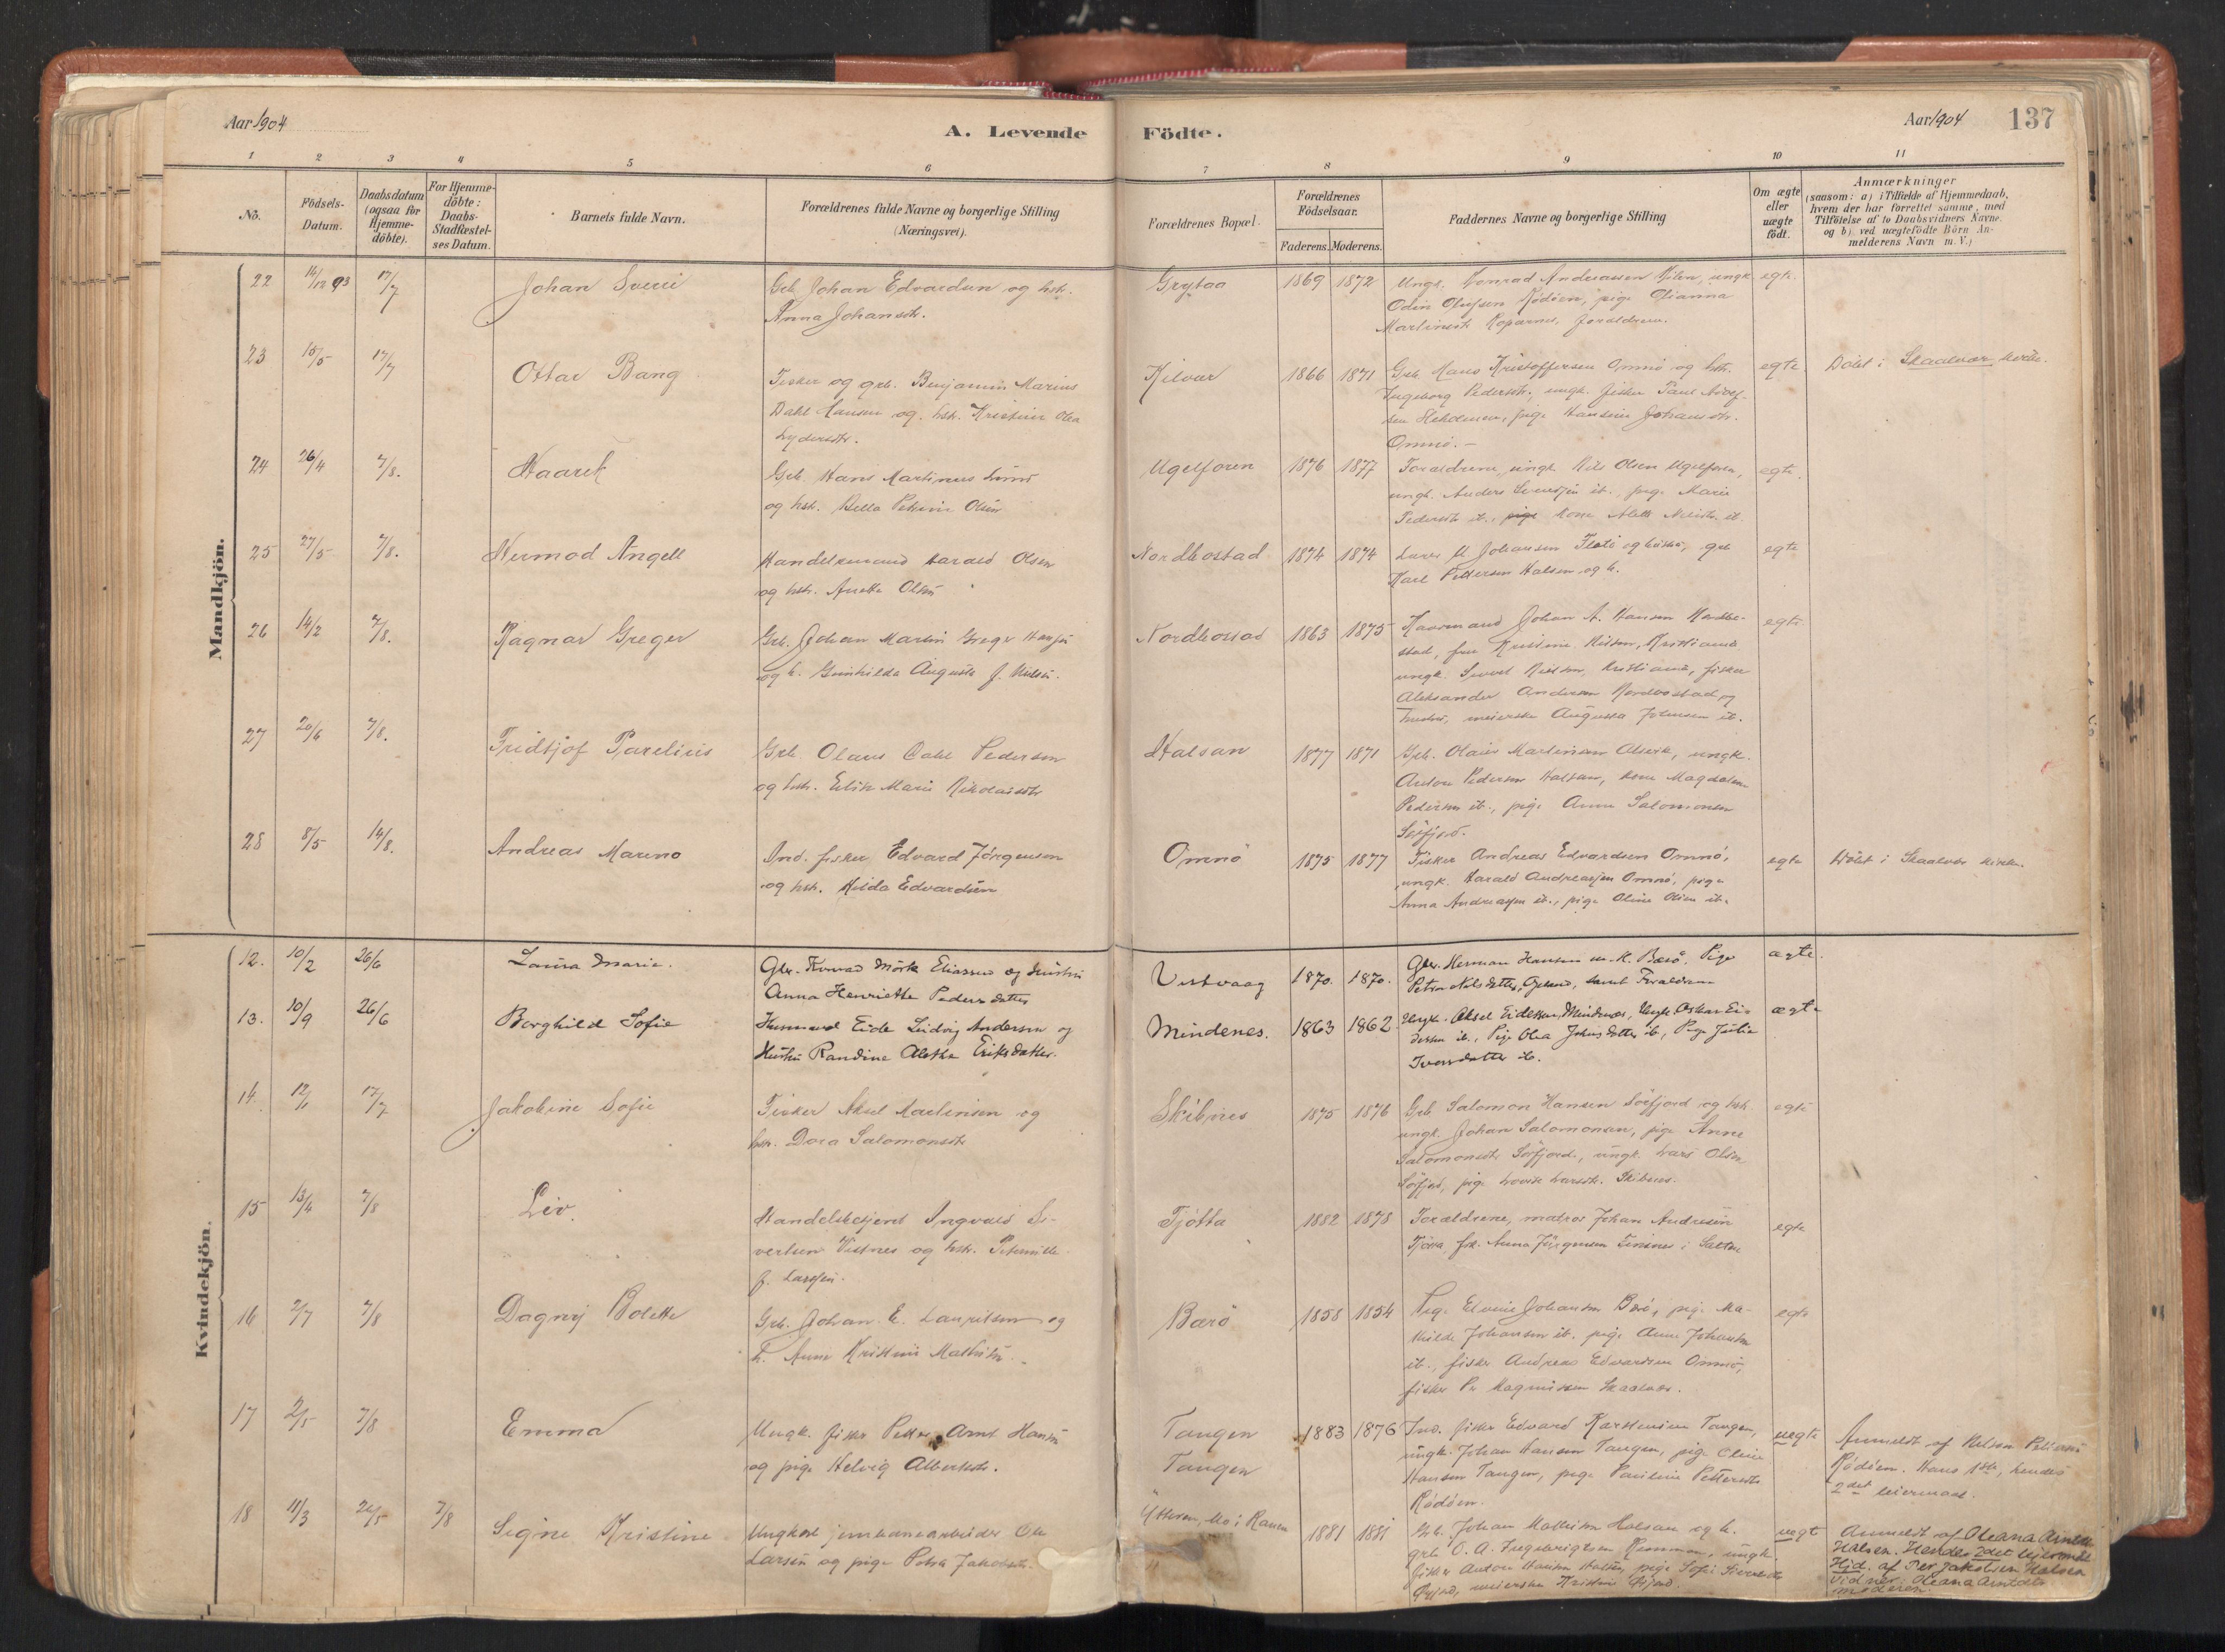 Aar 1904
A. Levende Födte.
Aar 1904 137
1 2 3 4 5 6 7 8 9 10 11
No.
Födsels-Datum.
Daabsdatum (ogsaa for Hjemme-döbte).
For Hjemme-döbte: Daabs-Stadfæstel-ses Datum.
Barnets fulde Navn.
Forældrenes fulde Navne og borgerlige Stilling (Næringsvei).
Forældrenes Bopæl.
Forældrenes Födselsaar.
Faderens. Moderens.
Faddernes Navne og borgerlige Stilling
Om ægte eller uægte födt.
Anmærkninger
(saasom: a) i Tilfælde af Hjemmedaab,
hvem der har forrettet samme, med
Tilföielse af to Daabsvidners Navne.
og b) ved uægtefödte Börn An-
melderens Navn m. V.)
Mandkjön.
22 14/12 93 17/7 Johan Sverre
Grb. Johan Edvardsen og hstr.
Anna Johansdtr.
Grytaa 1869 1872
Ungk. Konrad Andreassen Kilen, ungk.
Odin Olufsen Rödöen, pige
Martinsdtr. Forældrene.
egte.
23 15/5 17/7 Ottar Bang
Fisker og grb. Benjamin Marius
Dahl Hansen og hstr. Kristine Olea
Lydersdtr.
Kilvær 1866 1871
Grb. Hans Kristoffersen Omnö og hstr.
Ingeborg Pedersdtr., ungk. fisker Paul
pige Hansine Johansdtr.
Omnö.
egte
Döbt i Skaalvær kirke.
24 26/4 7/8. Haarek
Grb. Hans Martinus
og hstr. Petrine Olsen
Ugelforen 1876 1877
Forældrene, ungk. Nils Olsen Ugelforen,
ungk. Anders it., pige Marie
Pedersdtr. it., kone it.
egte.
25 27/5 7/8. Hermod Angell
Handelsmand Harald Olsen
og hstr. Anette Olsen
Nordbostad 1874 1874
Lars M Johansen og hustru, grb
Karl Pettersen Halsen og h.
egte
26 14/2 7/8. Ragnar Greger
Grb. Johan Martin Greger Hansen
og h. Gunhilda Augusta f. Nilsen.
Nordbostad 1863 1875
Johan A. Hansen Nordbo-
stad, fru Nilsen, Kristiania
ungk. Nilsen, Kristiania, fisker
Aleksander Andersen Nordbostad og
hustru, meierske Augusta Johnsen it.
egte.
27 20/6 7/8. Fridtjof Parelius
Grb. Olaus Dahl Pedersen
og hstr. Elise Marie Nikolaisdtr
Halsan 1877 1871
Grb. Olaus Martinsen Alsvik, ungk.
Anton Pedersen Halsan, kone Magdalena
Pedersen it., pige Anna Salomonsen
Sörfjord.
28 8/5 14/8. Andreas Mareno
Ind. fisker Edvard Jörgensen
og hstr. Hilda Edvardsen
Omnö 1875 1877
Fisker Andreas Edvardsen Omnö,
ungk. Harald Andreassen Omnö, pige
Anna Andreassen it., pige Oline Olsen it.
egte
Döbt i Skaalvær kirke.
Kvindekjön.
12. 10/2 26/6 Laura Marie.
Gbr. Konrad Mörk Eliassen og Hustru
Anna Henriette Pedersdatter
Vistvaag 1870. 1870.
Gbr. Herman Hansen m. K. Bærö, Pige
Petra Nilsdatter, samt Forældrene
ægte.
13. 10/9 26/6 Borghild Sofie
Husmand Eide Ludvig Andersen og
Hustru Randine Aletha Eriksdatter.
Mindenes. 1863 1862.
Ungk. Aksel Eidessen, Mindenes, Ungk. Oskar Ei-
dessen ib., Pige Olea Johnsdatter ib., Pige Julie
Iversdatter ib.
ægte
14. 12/1 17/7 Jakobine Sofie
Fisker Aksel Martinsen og
hstr. Dora Salomonsdtr
Skibnes 1875 1876
Grb Salomon Hansen Sörfjord og hstr.
ungk. Johan Salomonsen, pige Anne
Salomonsdtr Sörfjord, ungk. Lars Olsen
Sörfjord, pige Lovise Larsdtr. Skibnes.
egte
15 13/4 7/8 Liv.
Handelsbetjent Ingvald Si-
vertsen Vistnes og hstr. Peternille
f. Larssen.
Tjötta 1882 1878
Forældrene, matros Johan Andresen
Tjötta, frk. Anna Jörgensen i Salten
egte
16 2/7 7/8 Dagny Bolette
Grb. Johan E. Lauritsen og
h. Anne Kristine Mathisen.
Bærö 1858 1854
Pige Elvine Johansen Bærö, pige Ma-
thilde Johansen it. pige Anne Johansen
it., fisker Andreas Edvardsen Omnö,
fisker Pe Magnussen Skaalvær.
egte
17 2/5 7/8 Emma
Ungk. fisker Petter Arnt Hansen
og pige Helvig Albertsdtr.
Tangen
Tangen 1883 1876
Ind. fisker Edvard Karstensen Tangen,
ungk. Johan Hansen Tangen, pige Oline
Hansen Tangen, pige Pauline Pettersdtr
Rödöen.
uegte
Anmeldt af Nelson Pettersen
Rödöen. Hans 1ste, hendes
2det leiermaal.
18 11/3 24/5 7/8 Signe Kristine
Ungkarl jernbanearbeider Ole
Larsen og pige Petra Jakobsdtr.
Ytteren, Mo i Ranen 1881 1881
Grb. Johan Mathisen Halsan og h.
grb O. A. ungk.
fisker Anton Hansen Halsan, pige Sofie Sivertsdtr
meierske Kristine
uegt
Anmeldt af Oleana Arntdtr
Halsen. Hendes 2det leiermaal
Hjd. af Per Jakobsen Halsen
Vidner: Oleana Arntdtr
moderen.